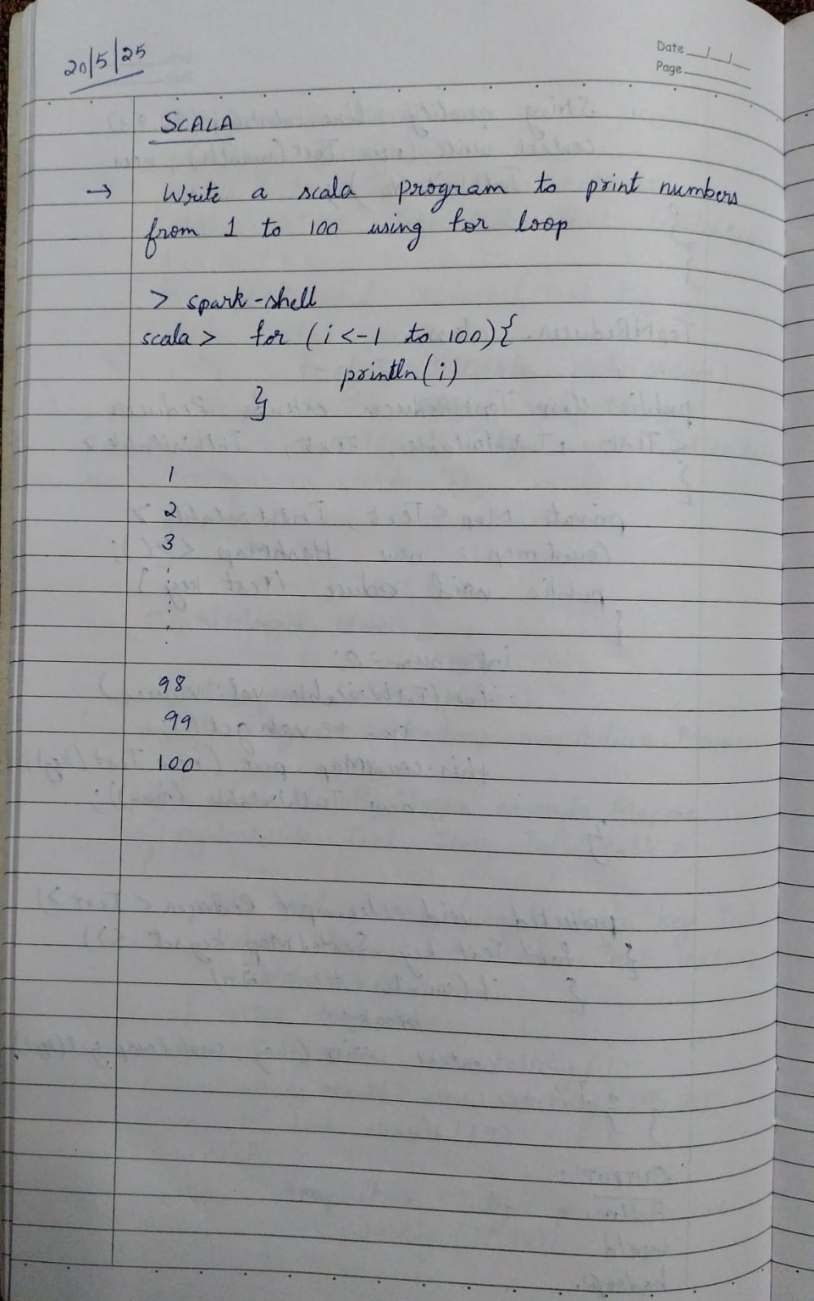 20/5/25
Date __/__/__
Page ______
SCALA
→ Write a scala program to print numbers
from 1 to 100 using for loop
> spark-shell
scala > for (i <- 1 to 100){
println(i)
}
1
2
3
:
:
:
98
99
100